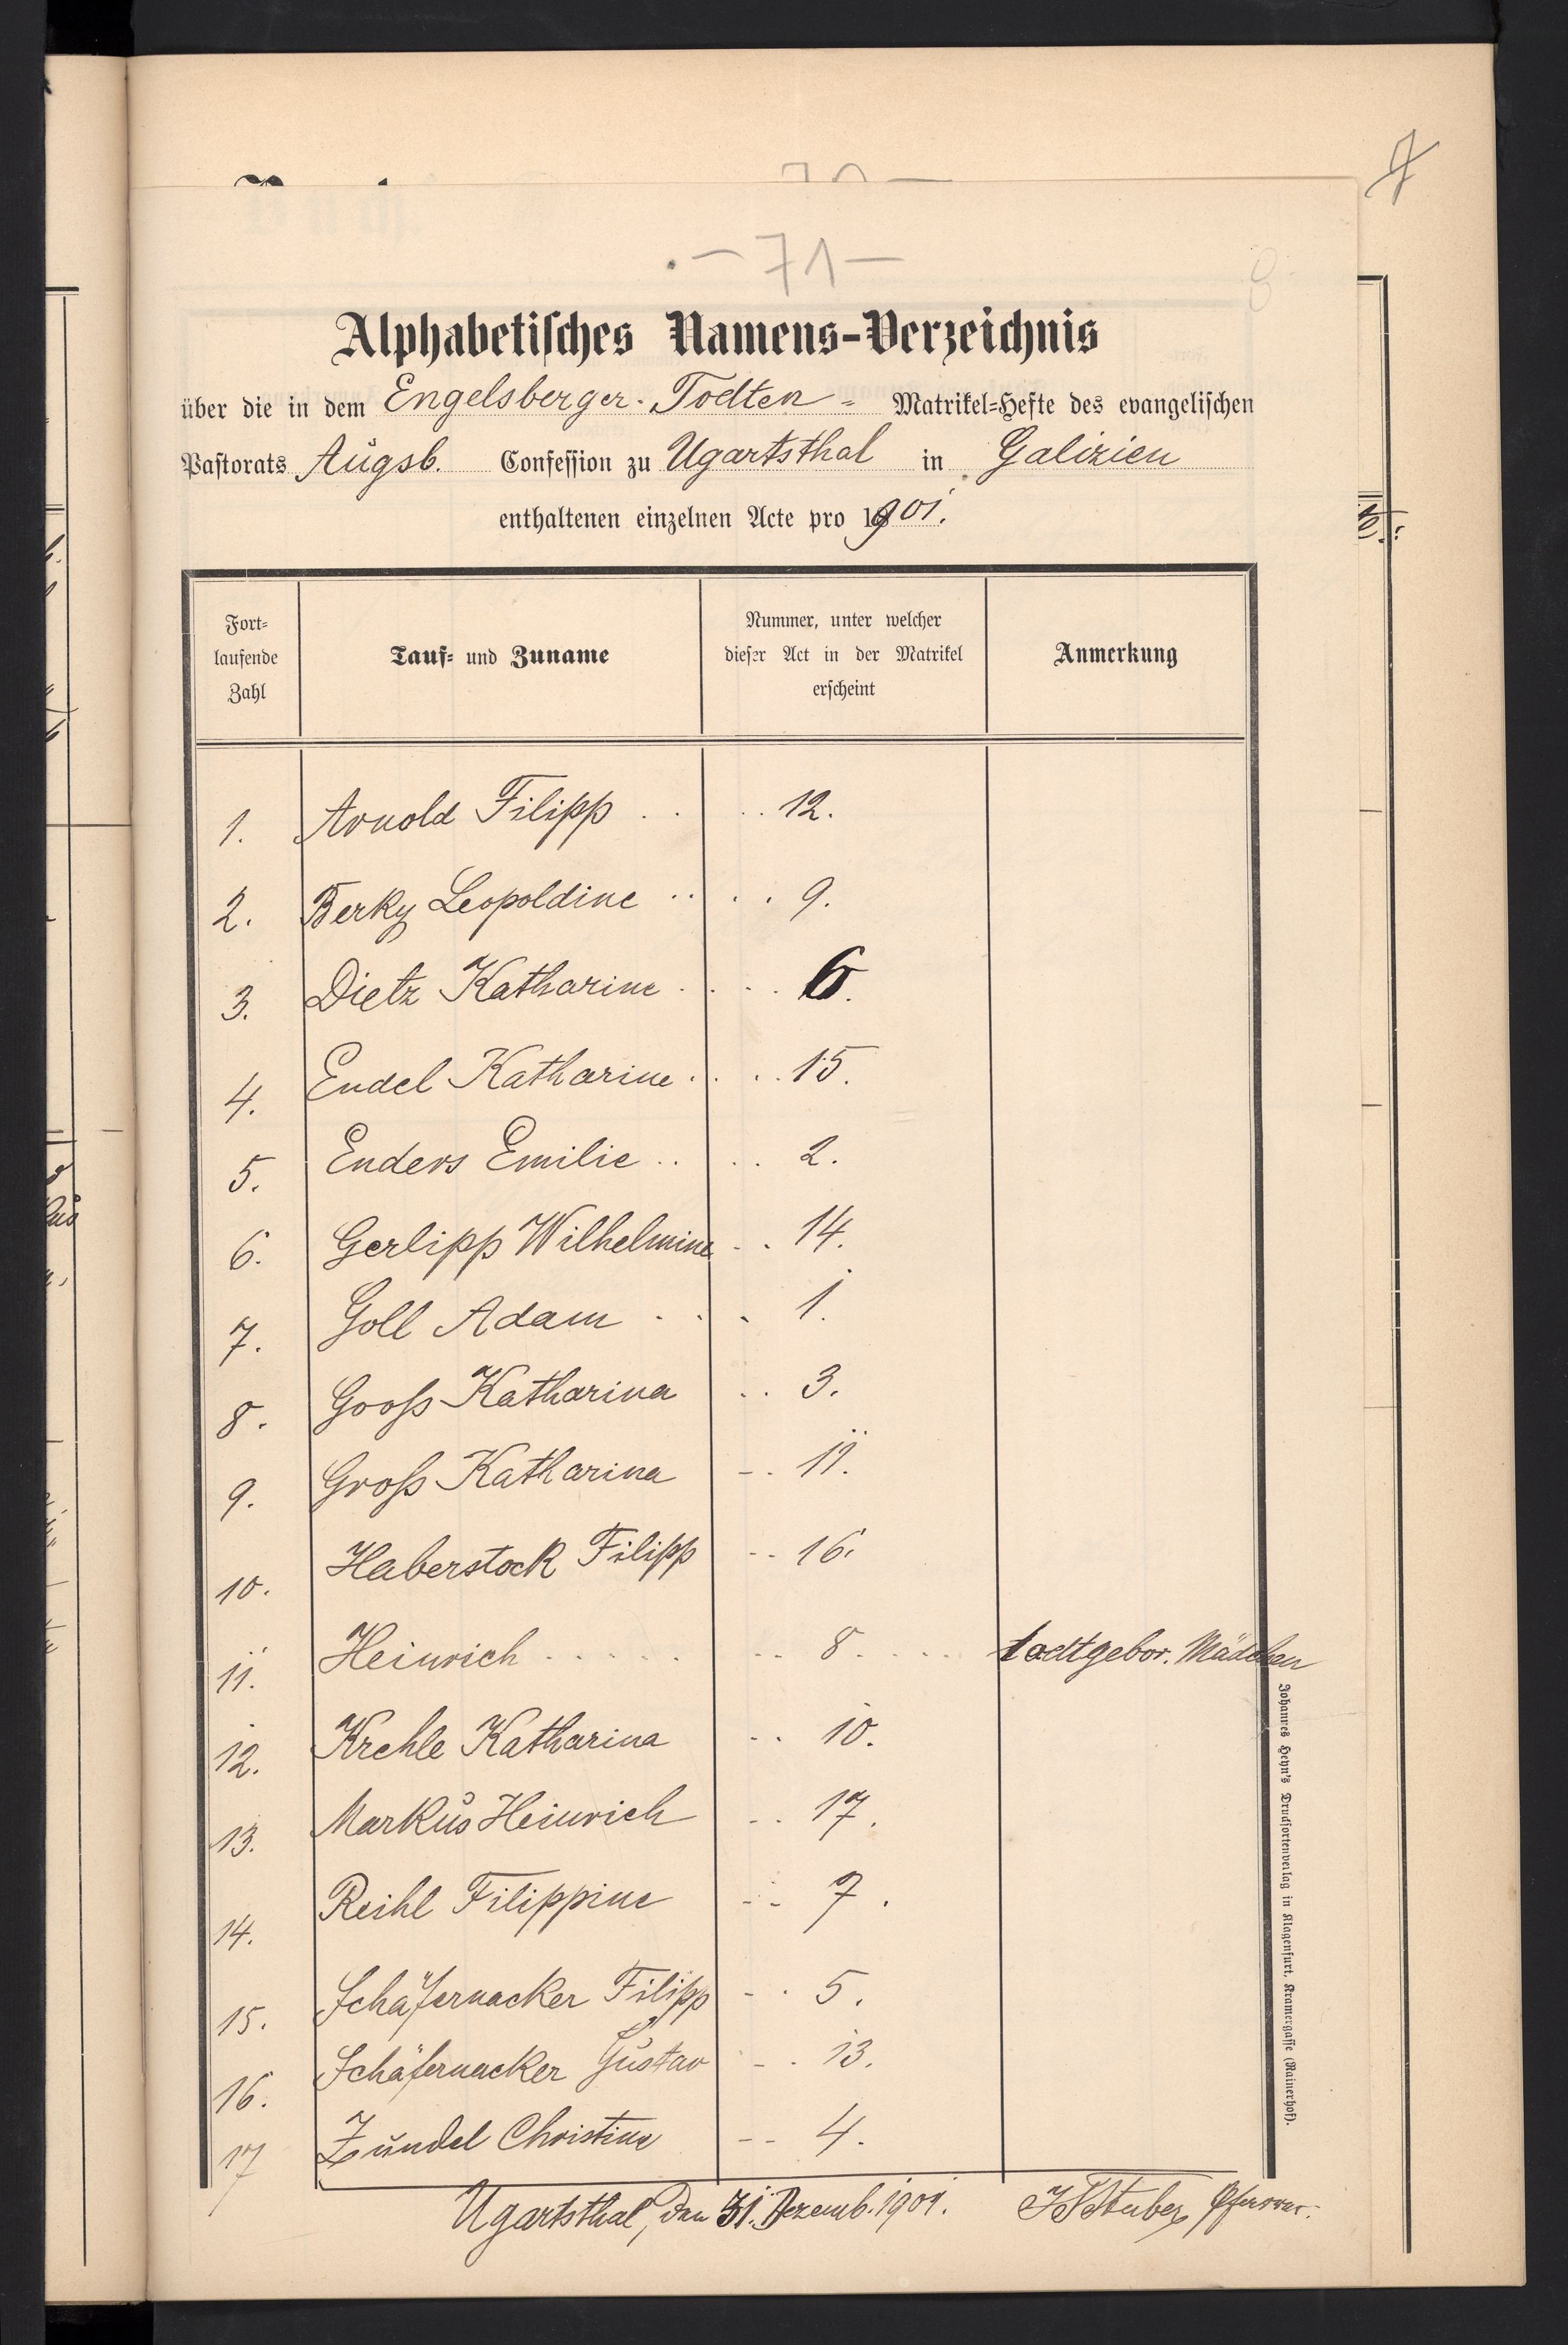 - 71 -
Alphabetisches Namens-Verzeichnis
über die in dem Engelsberger-Todten- Matrikel-Hefte des evangelischen
Pastorats Augsb. Confession zu Ugartsthal in Galizien
enthaltenen einzelnen Acte pro 1901.
Fort-
laufende
Zahl
Tauf- und Zuname
Nummer, unter welcher
dieser Act in der Matrikel
erscheint
Anmerkung
1. Arnold Filipp . . . . 12.
2. Berky Leopoldine . . . . 9.
3. Dietz Katharine . . . . 6.
4. Endel Katharine . . . . 15.
5. Enders Emilie . . . . 2.
6. Gerlipp Wilhelmine . . 14.
7. Goll Adam . . . 1.
8. Gooß Katharina . . 3.
9. Groß Katharina - . 11.
10. Haberstock Filipp - - 16.
11. Heinrich . . . . . . - - 8 . . . . todtgebor. Mädchen
12. Krehle Katharina - . 10.
13. Markus Heinrich - . 17.
14. Reihl Filippine - - 7.
15. Schäfernacker Filipp - . 5.
16. Schäfernacker Gustav - . 13.
17 Zundel Christine - - 4.
Ugartsthal, den 31. Dezemb. 1901.
Johannes Heyn's Drucksortenverlag in Klagenfurt, Kramergasse (Rainerhof).